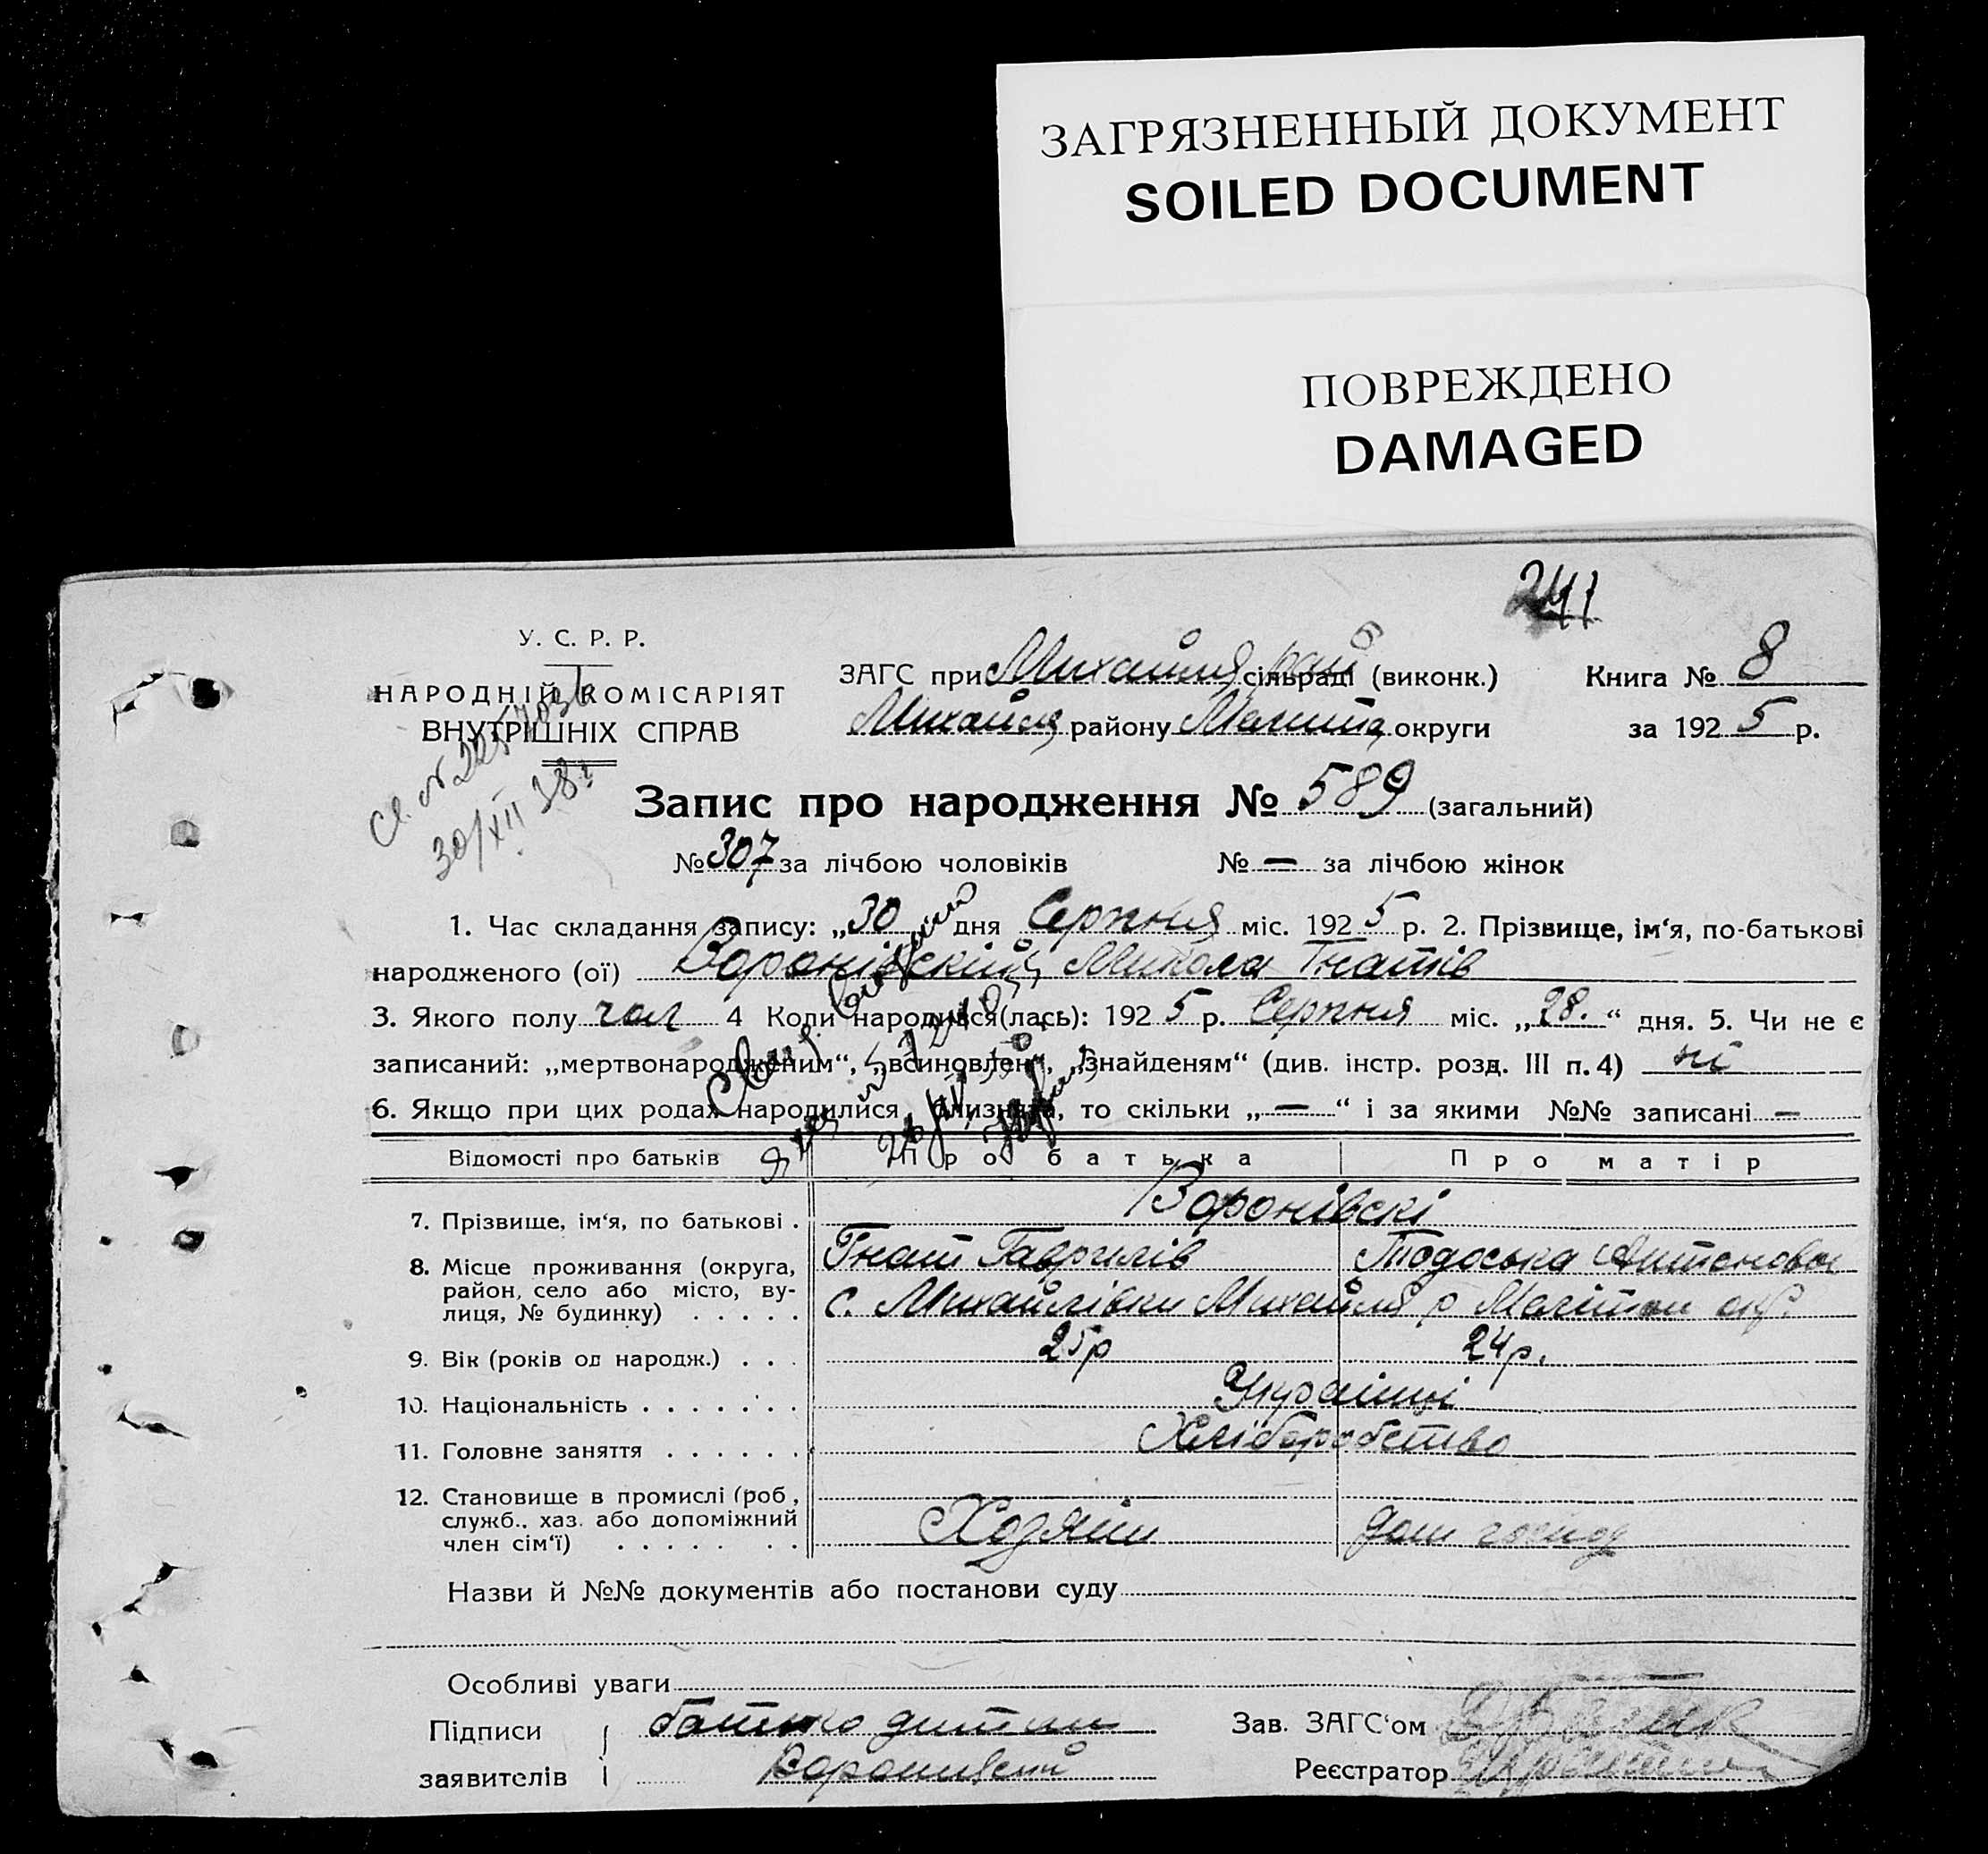 ЗАГРЯЗНЕННЫЙ ДОКУМЕНТ
SOILED DOCUMENT
ПОВРЕЖДЕНО
DAMAGED
241
У. С. Р. Р.
НАРОДНІЙ КОМІСАРІЯТ
ВНУТРІШНІХ СПРАВ
30/XII 38 г
ЗАГС при Михайля рай сільраді (виконк.) Книга № 8
Михайля району Меліта округи за 192 5 р.
Запис про народження № 589 (загальний)
№ 307 за лічбою чоловіків № — за лічбою жінок
1. Час складання запису: „30 дня Серпня міс. 192 5 р. 2. Прізвище, ім‘я, по-батькові
народженого (ої) Воронівский Микола Гнатів
3. Якого полу чол 4 Коли народився(лась): 192 5 р. Серпня міс. „ 28. “ дня. 5. Чи не є
записаний: „мертвонародженим“, „всиновлен“, „знайденям“ (див. інстр. розд. III п. 4) ні
6. Якщо при цих родах народилися близнята, то скільки „ — “ і за якими №№ записані —
Відомості про батьків Про батька Про матір
Воронівскі
7. Прізвище, ім‘я, по батькові .
Гнат Гаврилів Тодоська Антонова
8. Місце проживання (округа,
район, село або місто, ву-
лиця, № будинку) . . . . .
с. Михайлівки Михайля р Мелітоп окр.
9. Вік (років од народж.) . . . 25 р 24 р.
10. Національність . . . . . . . Українці
11. Головне заняття . . . . . . Хліборобство
12. Становище в промислі (роб,
служб., хаз. або допоміжний
член сім‘ї) . . . . . . .
Хозяїн дом господ
Назви й №№ документів або постанови суду
Особливі уваги
Підписи батько дитини Зав. ЗАГС‘ом
заявителів Воронивский Реєстратор